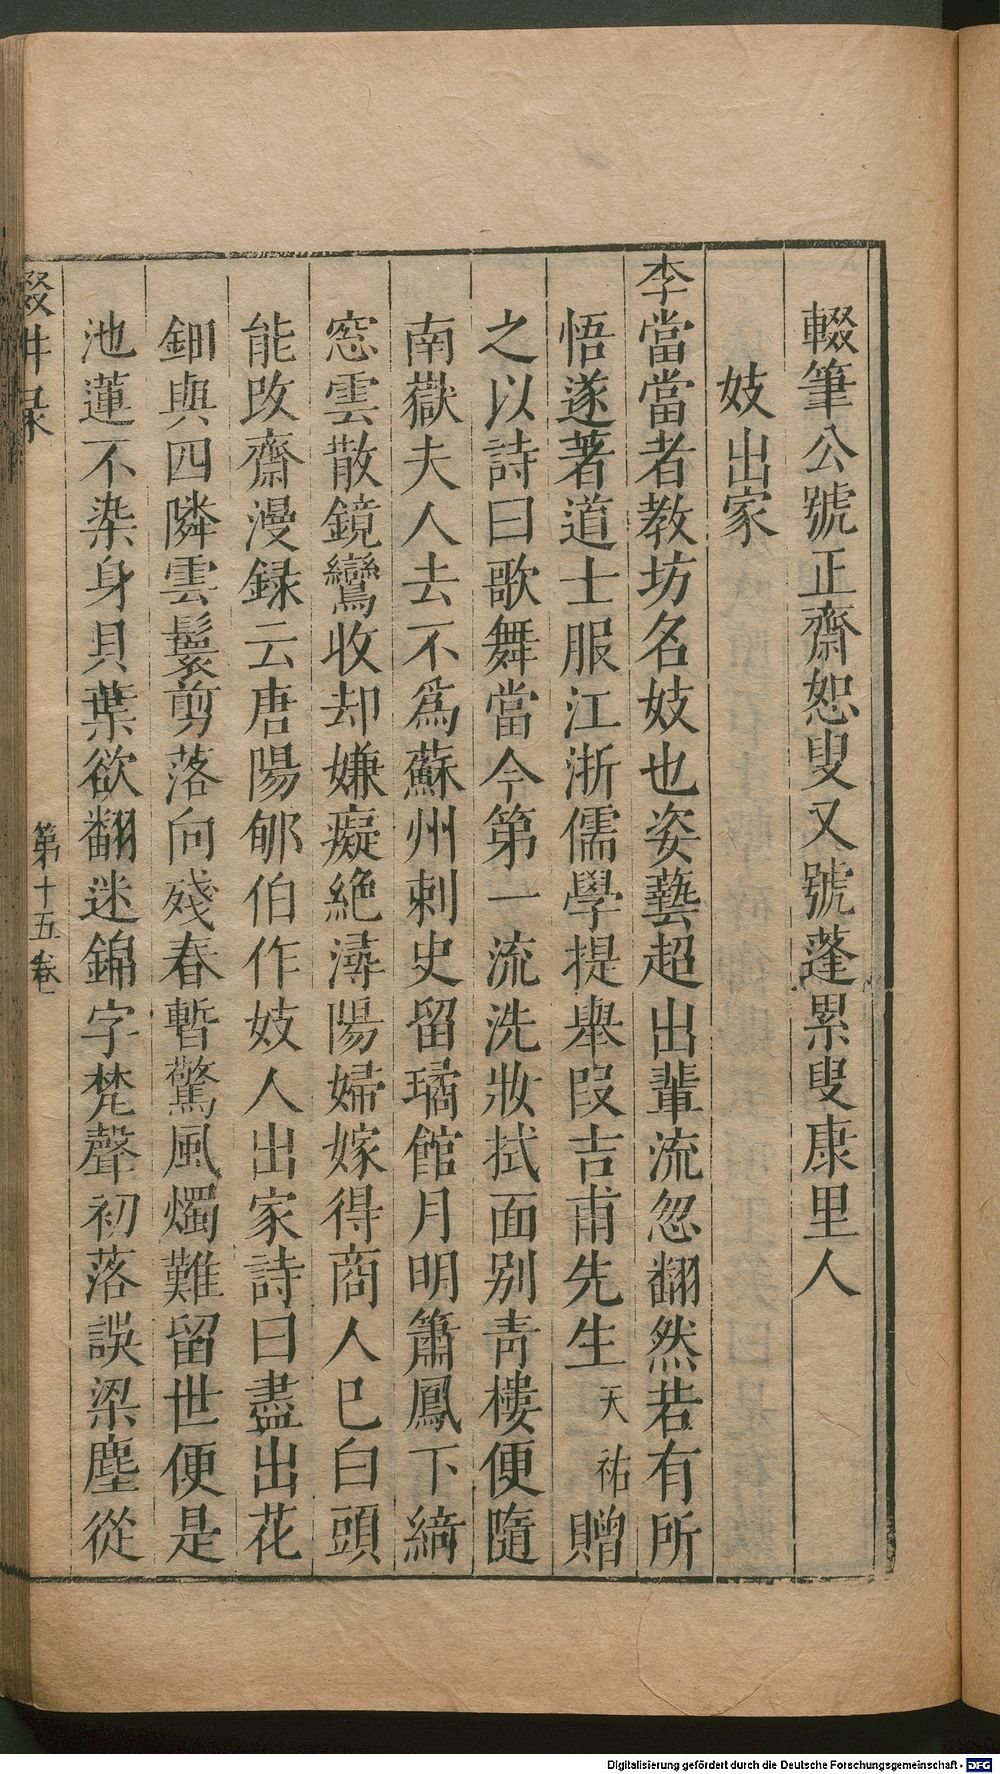 輟筆公號正齋恕叟又號蓬累叟康里人
妓出家
李當當者教坊名妓也姿藝超出輩流忽翻然若有所
悟遂著道士服江浙儒學提舉叚吉甫先生天祐贈
之以詩曰歌舞當今第一流洗妝拭面别青樓便隨
南嶽夫人去不爲蘇州刺史留璚館月明簫鳳下綺
窓雲散鏡鸞收却嫌癡絶潯陽婦嫁得商人已白頭
能改齋漫録云唐陽郇伯作妓人出家詩曰盡出花
鈿與四隣雲鬟剪落向殘春暫驚風燭難留世便是
池蓮不染身貝葉欲翻迷錦字梵聲初落誤梁塵從
輟耕录
第十五卷
Digitalisierung gefördert durch die Deutsche Forschungsgemeinschaft - DFG